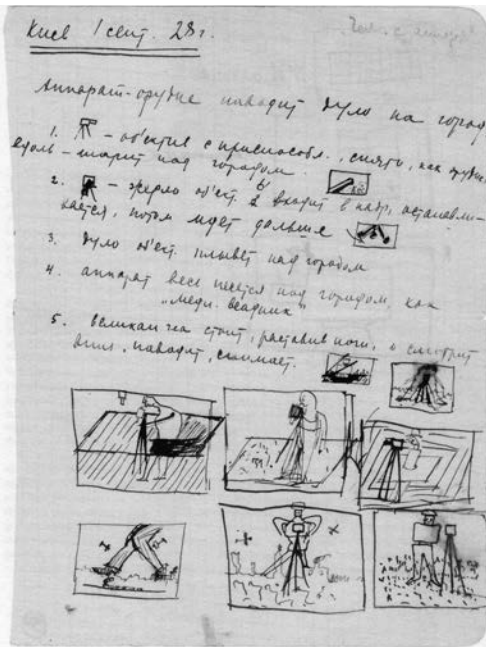 Киев 1 сент. 28 г.
Аппарат-орудие наводит дуло на город
1. – об'ектив с приспособл., снятый, как орудие
вдоль – шарит над городом.
2. – жерло об'ект. входит в кадр, останавли-
вается, потом идет дальше
3. дуло об'ект. плывет над городом
4. аппарат весь несется над городом, как
„медн. всадник"
5. великан стоит, расставив ноги, и смотрит
вниз, наводит, снимает.